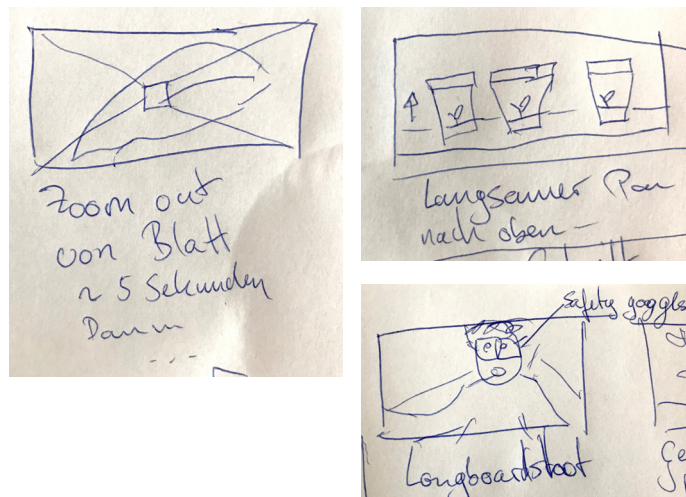 Zoom out
von Blatt
~ 5 Sekunden
Dann
...
Langsamer Pan
nach oben -
Safety goggles
Longboardshoot
Ge